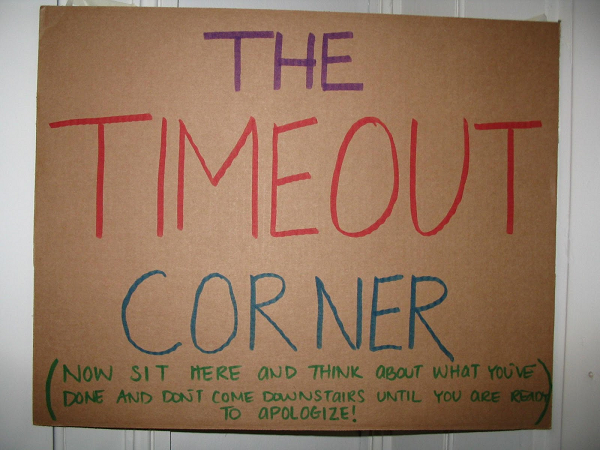 THE
TIMEOUT
CORNER
(NOW SIT HERE AND THINK ABOUT WHAT YOU'VE
DONE AND DON'T COME DOWNSTAIRS UNTIL YOU ARE READY
TO APOLOGIZE!)